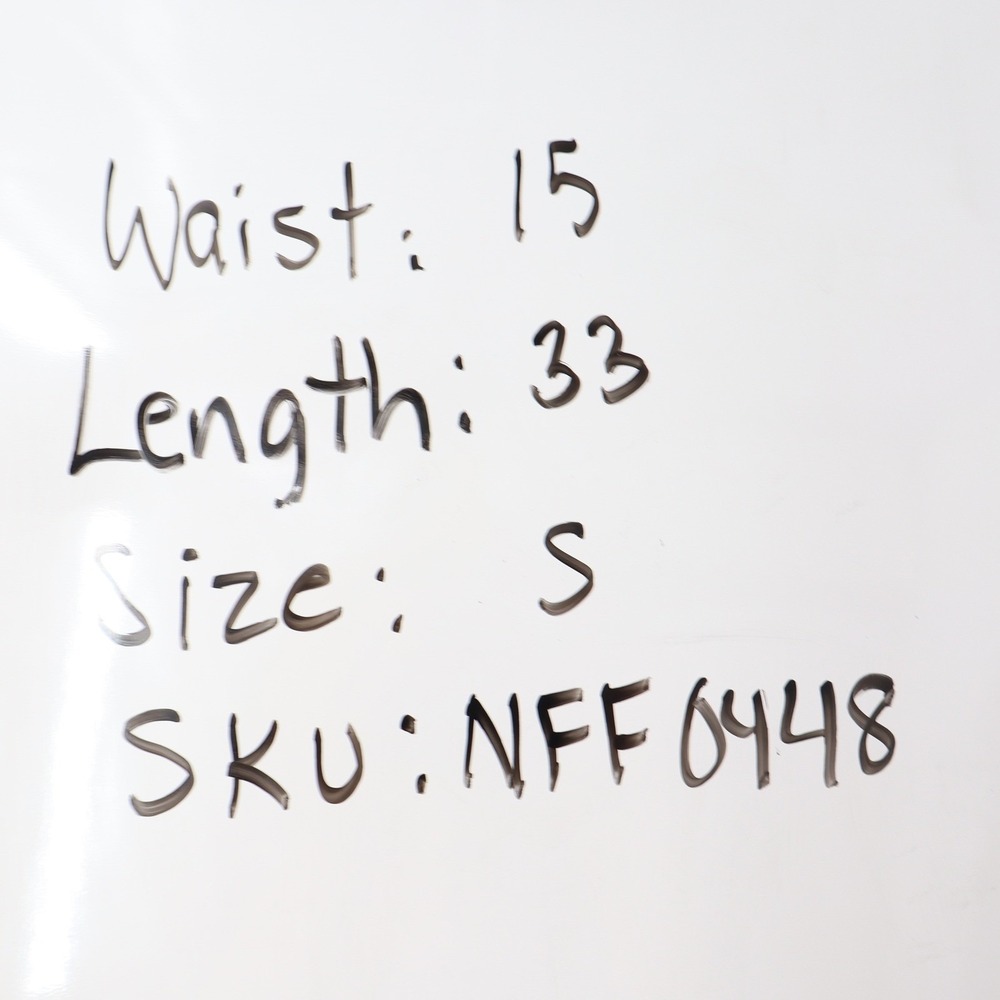 Waist: 15
Length: 33
Size: S
SKU: NFF0448